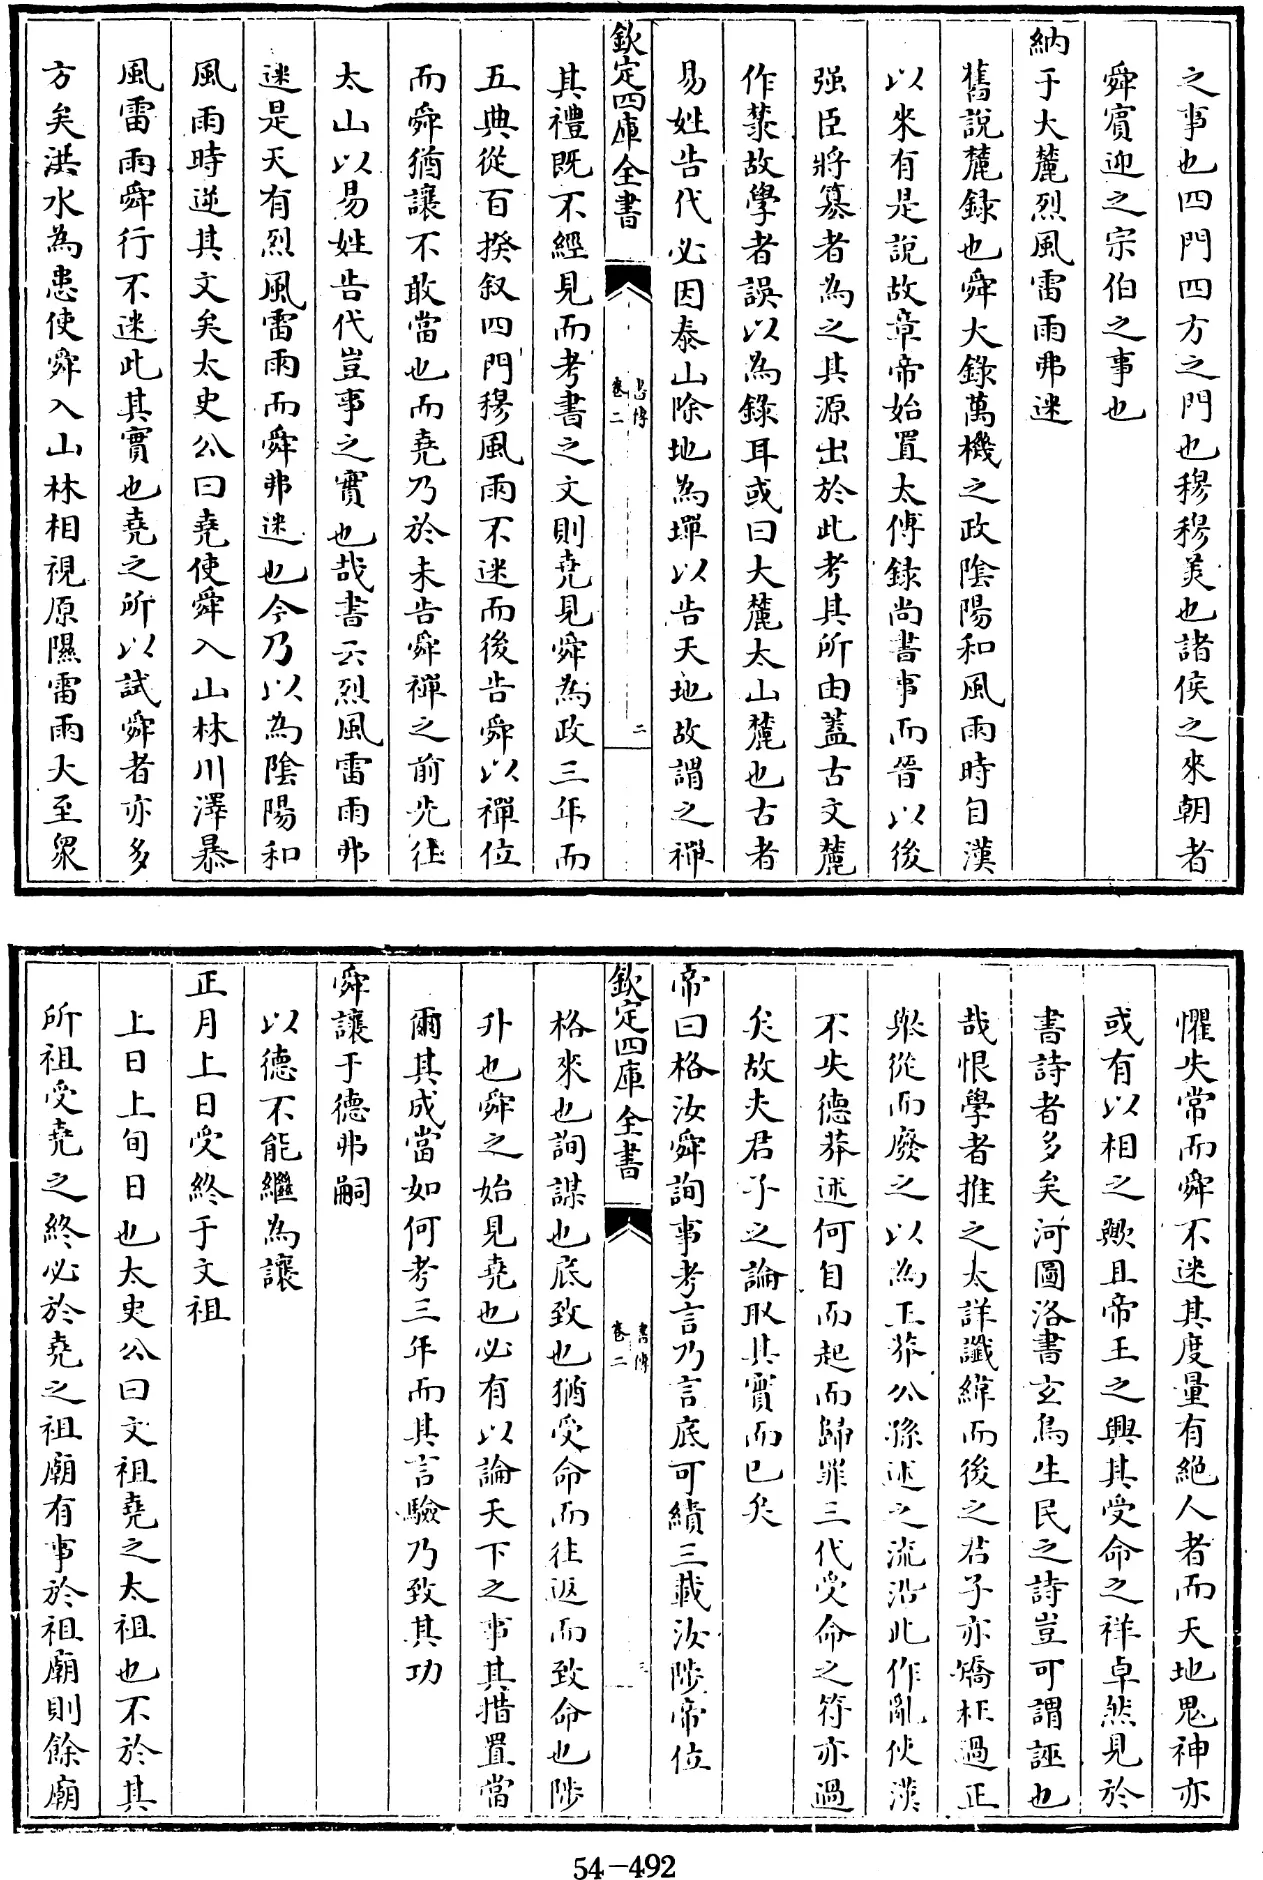 之事也四門四方之門也穆穆美也諸侯之來朝者
舜賓迎之宗伯之事也
納于大麓烈風雷雨弗迷
舊說麓錄也舜大錄萬機之政陰陽和風雨時自漢
以來有是說故章帝始置太傅錄尚書事而晉以後
强臣將篡者為之其源出於此考其所由蓋古文麓
作𣛖故學者誤以為錄耳或曰大麓太山麓也古者
易姓告代必因泰山除地為墠以告天地故謂之禪
欽定四庫全書
書傳
卷二
二
其禮既不經見而考書之文則堯見舜為政三年而
五典從百揆叙四門穆風雨不迷而後告舜以禪位
而舜猶讓不敢當也而堯乃於未告舜禪之前先往
太山以易姓告代豈事之實也哉書云烈風雷雨弗
迷是天有烈風雷雨而舜弗迷也今乃以為陰陽和
風雨時逆其文矣太史公曰堯使舜入山林川澤暴
風雷雨舜行不迷此其實也堯之所以試舜者亦多
方矣洪水為患使舜入山林相視原隰雷雨大至眾
懼失常而舜不迷其度量有絕人者而天地鬼神亦
或有以相之歟且帝王之興其受命之祥卓然見於
書詩者多矣河圖洛書玄鳥生民之詩豈可謂誣也
哉恨學者推之太詳讖緯而後之君子亦矯枉過正
舉從而廢之以為王莽公孫述之流沿此作亂使漢
不失德莽述何自而起而歸罪三代受命之符亦過
矣故夫君子之論取其實而已矣
帝曰格汝舜詢事考言乃言底可績三載汝陟帝位
欽定四庫全書
書傳
卷二
三
格來也詢謀也底致也猶受命而往返而致命也陟
升也舜之始見堯也必有以論天下之事其措置當
爾其成當如何考三年而其言驗乃致其功
舜讓于德弗嗣
以德不能繼為讓
正月上日受終于文祖
上日上旬日也太史公曰文祖堯之太祖也不於其
所祖受堯之終必於堯之祖廟有事於祖廟則餘廟
54-492